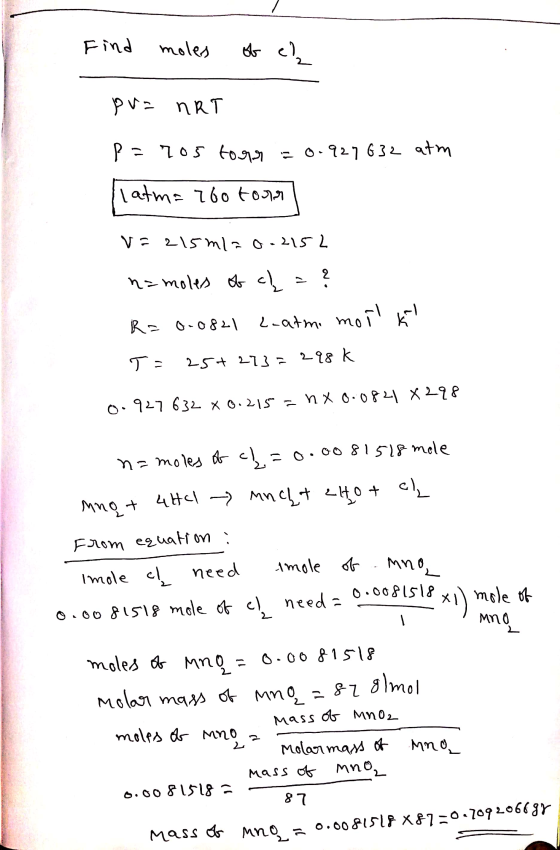 Find moles of cl₂
PV = nRT
P = 705 torr = 0.927632 atm
1atm = 760 torr
V = 215ml = 0.215 L
n = moles of cl₂ = ?
R = 0.0821 L-atm. mol⁻¹ K⁻¹
T = 25 + 273 = 298 K
0.927632 x 0.215 = n x 0.0821 x 298
n = moles of cl₂ = 0.0081518 mole
MnO₂ + 4HCl → MnCl₂ + 2H₂O + Cl₂
From equation :
1mole cl₂ need 1mole of MnO₂
0.0081518 mole of cl₂ need = 0.0081518/1 x 1) mole of MnO₂
moles of MnO₂ = 0.0081518
Molar mass of MnO₂ = 87 g/mol
moles of MnO₂ = Mass of MnO₂ / Molar mass of MnO₂
0.0081518 = Mass of MnO₂ / 87
Mass of MnO₂ = 0.0081518 x 87 = 0.70920668g